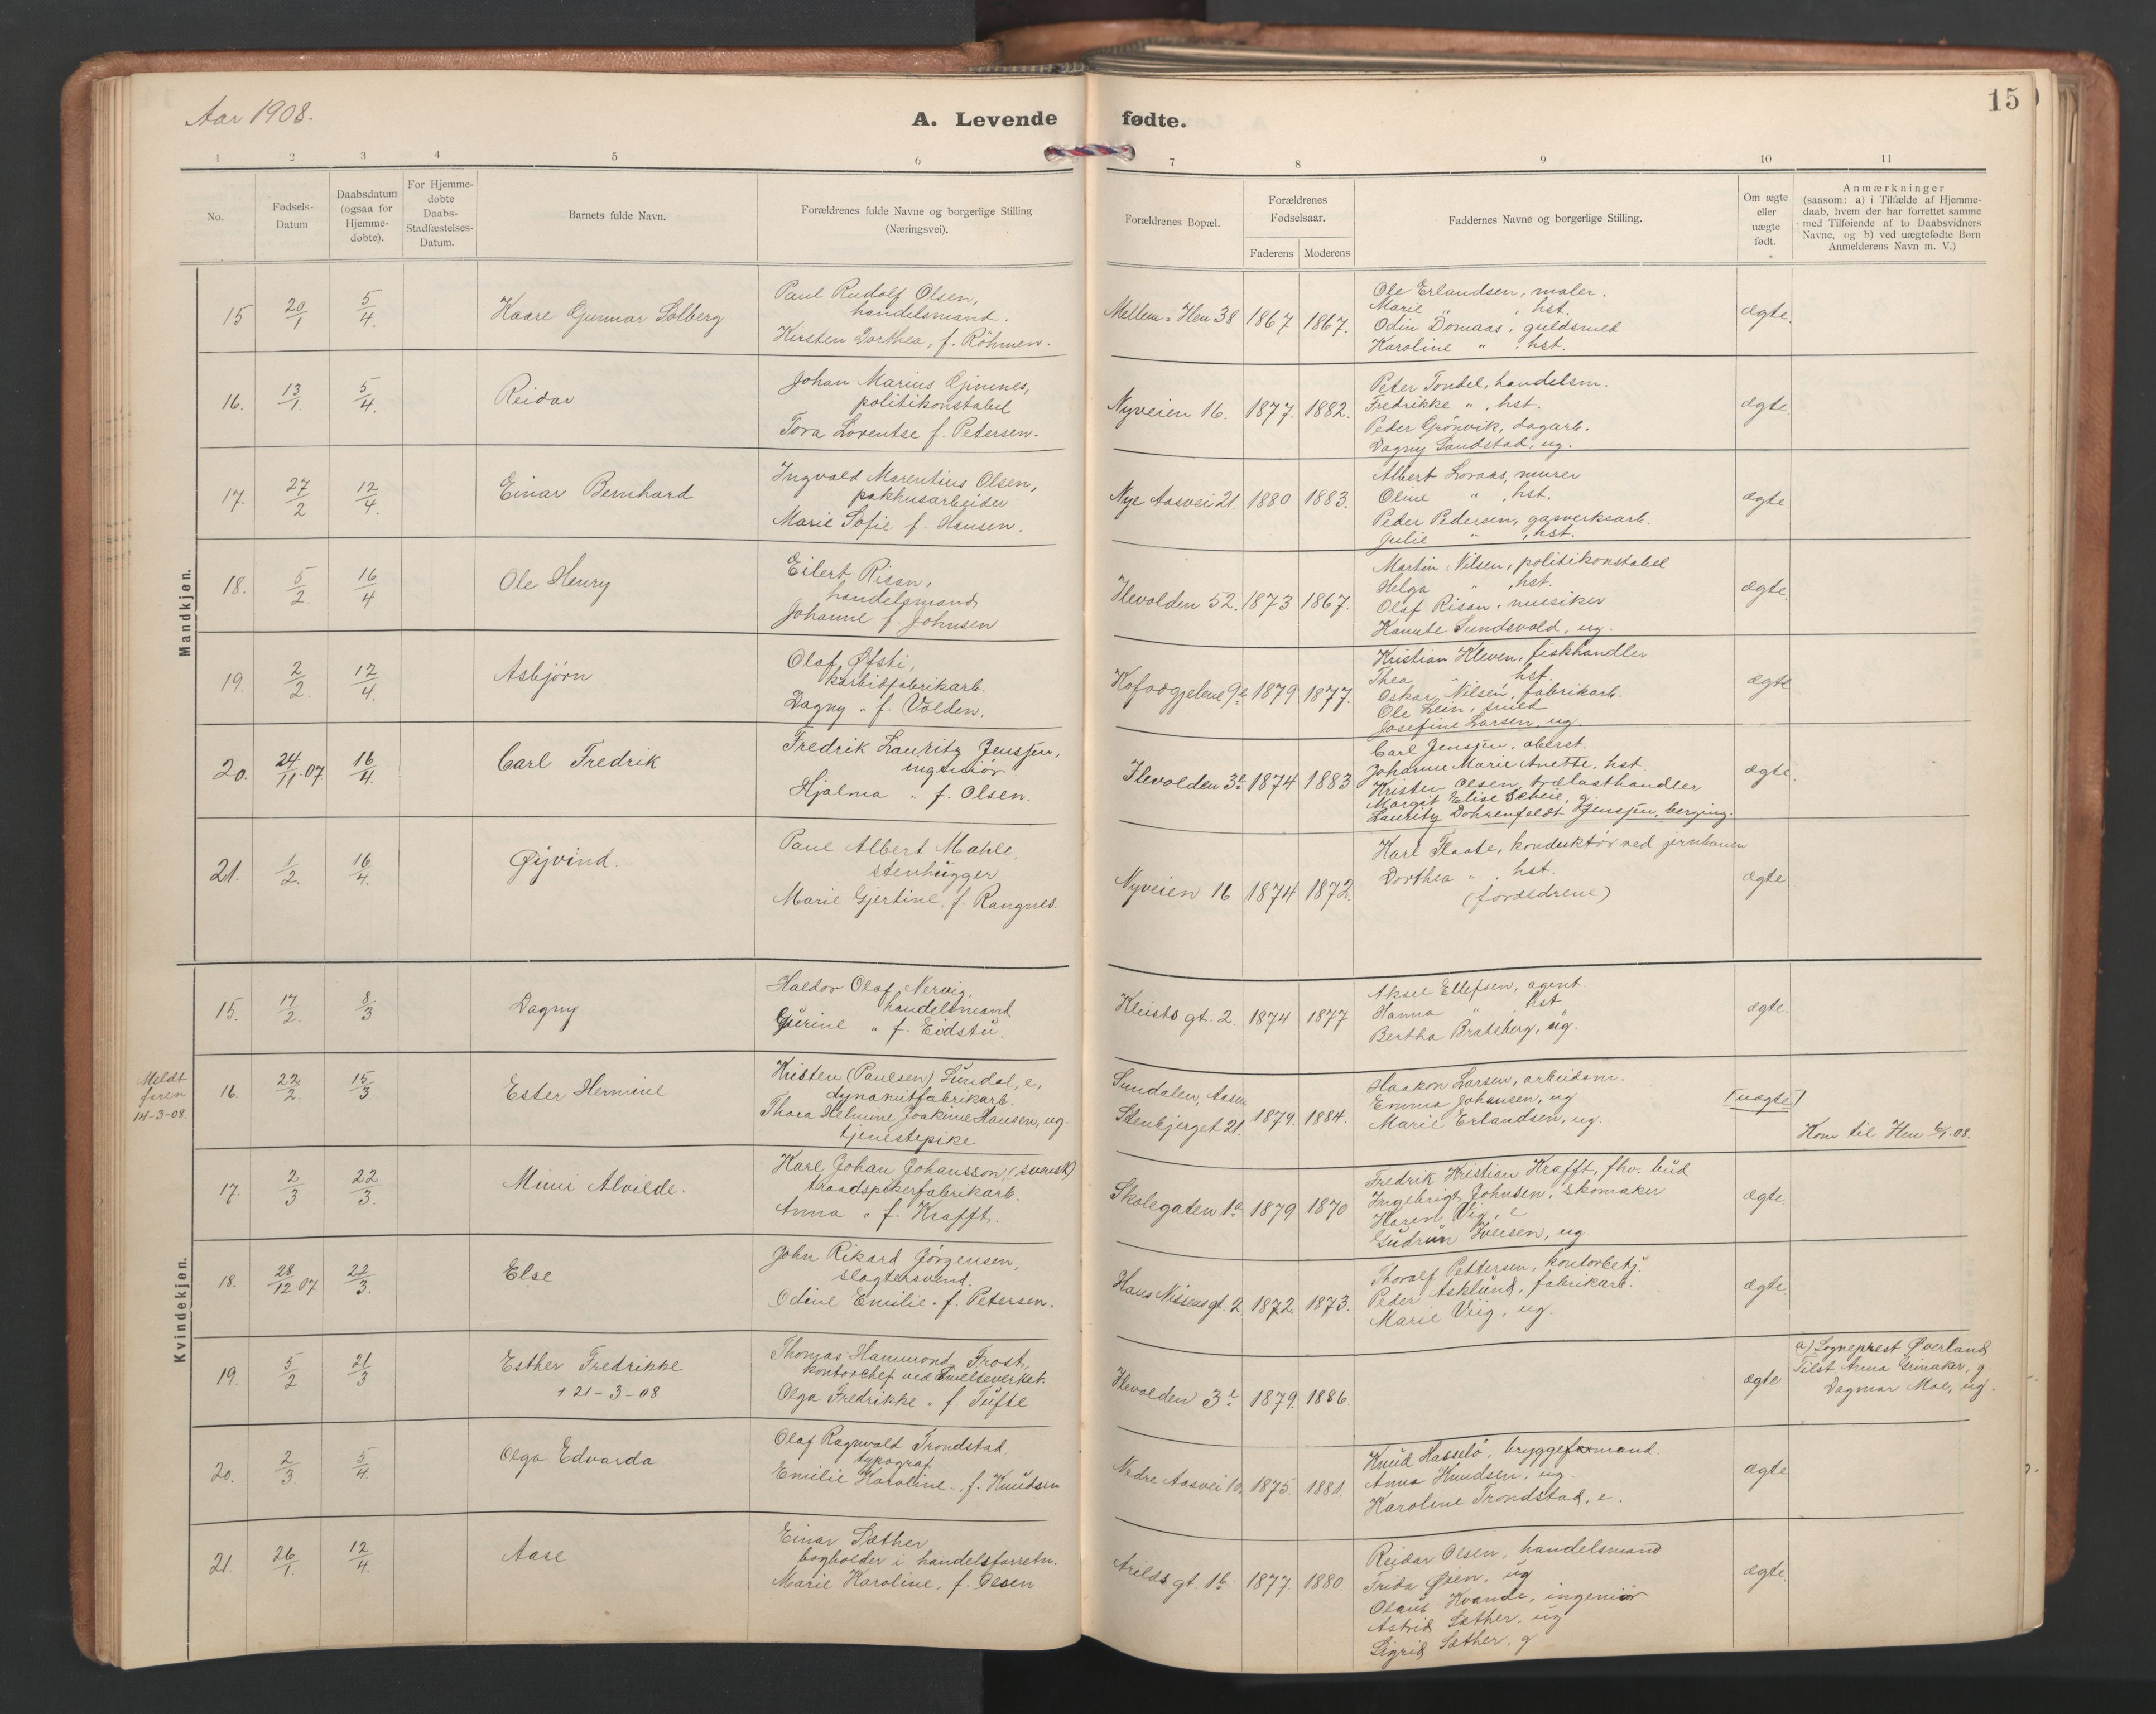 Aar 1908.
A. Levende fødte.
15
1 2 3 4 5 6 7 8 9 10 11
No.
Fødsels-
Datum
Daabsdatum
(ogsaa for
Hjemme-
døbte).
For Hjemme-
døbte
Daabs-
Stadfæstelses-
Datum.
Barnets fulde Navn.
Forældrenes fulde Navne og borgerlige Stilling
(Næringsvei).
Forældrenes Bopæl.
Forældrenes
Fødselsaar.
Faderens Moderens
Faddernes Navne og borgerlige Stilling.
Om ægte
eller
uægte
født.
Anmærkninger
(saasom: a) i Tilfælde af Hjemme-
daab, hvem der har forrettet samme
med Tilføiende af to Daabsvidners
Navne, og b) ved uægtefødte Børn
Anmelderens Navn m. V.)
Mandkjøn.
15 20/1 5/4. Kaare Gunnar Solberg
Paul Rudolf Olsen,
handelsmand.
Kirsten Dorthea, f. Röhmen.
Mellem-Ilen 38 1867 1867.
Ole Erlandsen, maler.
Marie " , hst.
Odin Domaas, guldsmed
Karoline " , hst.
ægte.
16. 13/1. 5/4. Reidar
Johan Marius Gjinnes,
politikonstabel
Tora Lorentse f. Petersen.
Nyveien 16. 1877. 1882.
Peter Tondel, handelsm.
Fredrikke " , hst.
Peder Grönvik, dagarb.
Dagny Sandstad, ug.
ægte
17. 27/2 12/4. Einar Bernhard
Ingvald Marentius Olsen,
pakhusarbeider
Marie Sofie f. Hansen.
Nye Aasvei 21. 1880 1883.
Albert Loraas, murer
Oline " , hst.
Peder Pedersen, gasverksarb.
Julie " , hst.
ægte
18. 5/2. 16/4 Ole Henry
Eilert Risan,
handelsmand
Johanne f. Johnsen
Ilevolden 52. 1873 1867.
Martin Nilsen, politikonstabel
Helga " , hst.
Olaf Risan, musiker
Kamte Sundsvold, ug.
ægte.
19. 2/2. 12/4. Asbjørn
Olaf Øfsti,
karbidfabrikarb.
Dagny " f. Volden.
Kofoedgjelene 9e 1879 1877.
Kristian Kleven, fiskhandler
Thea " hst.
Oskar Nilsen, fabrikarb.
Ole Lein, smed
Josefine Larsen, ug.
ægte
20. 24/11 07. 16/4. Carl Fredrik
Fredrik Lauritz Jenssen,
ingeniör
Hjalma " f. Olsen.
Ilevolden 3e 1874 1883
Carl Jenssen, oberst.
Johanne Marie Anette, hst.
Kristen Olsen, trælasthandler
Margit Elise Scheie, g.
Lauritz Dohrenfeldt Jenssen, berging.
ægte.
21. 1/2. 16/4. Øyvind.
Paul Albert Mahle,
stenhugger
Marie Gjertine, f. Rangnes.
Nyveien 16 1874 1872.
Karl Flaate, konduktör ved jernbanen
Dorthea " , hst.
(forældrene)
ægte
Kvindekjøn.
15. 17/2. 8/3 Dagny
Haldor Olaf Nervig,
handelsmand
Gurine " f. Eidstu.
Kleists gt. 2. 1874 1877
Aksel Ellefsen, agent
Hanna " , hst.
Bertha Bratsberg, ug.
ægte.
Meldt
faren
14-3-08.
16. 22/2. 15/3 Ester Hermine
Kristen (Paulsen) Sundal, e,
dynamitfabrikarb.
Thora Helmine Joakime Hansen, ug.
tjenestepike
Sundalen, Aasen
Stenbjerget 21. 1879. 1884.
Haakon Larsen, arbeidsm.
Emma Johansen, ug
Marie Erlandsen, ug.
[uægte]
Kom til Ilen 6/1.08.
17. 2/3 22/3. Mimi Alvilde.
Karl Johan Johansson, (svensk)
traadspikerfabrikarb.
Anna " f. Krafft.
Skolegaten 1a 1879 1870
Fredrik Kristian Krafft, fhv. bud
Ingebrigt Johnsen, skomaker
Karen Vig, e
Gudrun Iversen, ug
ægte.
18. 28/12 07 22/3. Else
John Rikard Jörgensen,
slagtersvend.
Odine Emilie " f. Petersen.
Hans Nissens gt. 2. 1872. 1873.
Thoralf Pettersen, kontorbetj.
Peder Asklund, fabrikarb.
Marie Viig, ug.
ægte.
19. 5/2 21/3 Esther Fredrikke
+ 21-3-08
Thomas Hammond Frost,
kontorchef ved
Olga Fredrikke " f. Tufte
Ilevolden 3e 1879. 1886.
ægte
a) Sogneprest Øverland
Tilst. Anna Grinaker, g.
Dagmar Moe, ug.
20. 2/3 5/4. Olga Edvarda
Olaf Ragnvald Trondstad,
typograf
Emilie Karoline " f. Knudsen
Nedre Aasvei 10. 1875. 1881.
Knud Hasselö, bryggeformand.
Anna Knudsen, ug.
Karoline Trondstad, e.
ægte
21. 26/1. 12/4. Aase
Einar Sæther,
bogholder i handelsforretn.
Marie Karoline, f. Olsen
Arilds gt. 1b 1877. 1880.
Reidar Olsen, handelsmand
Frida Øien, ug
Olaus Kvande, ingeniör
Astrid Sæther, ug
Sigrid Sæther, g
ægte.